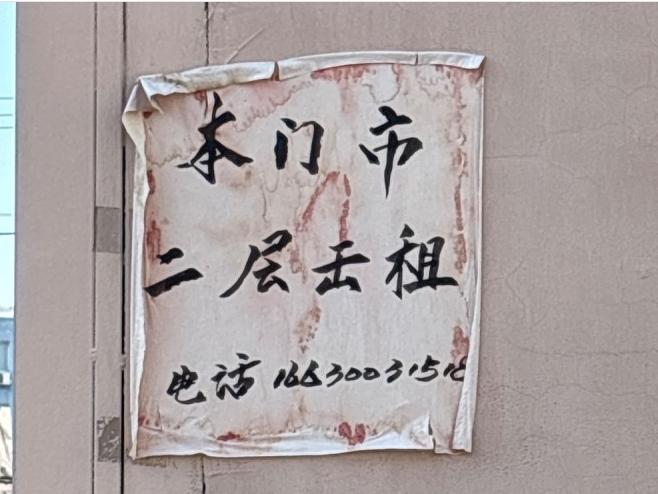 本门市
二层出租
电话16630031518